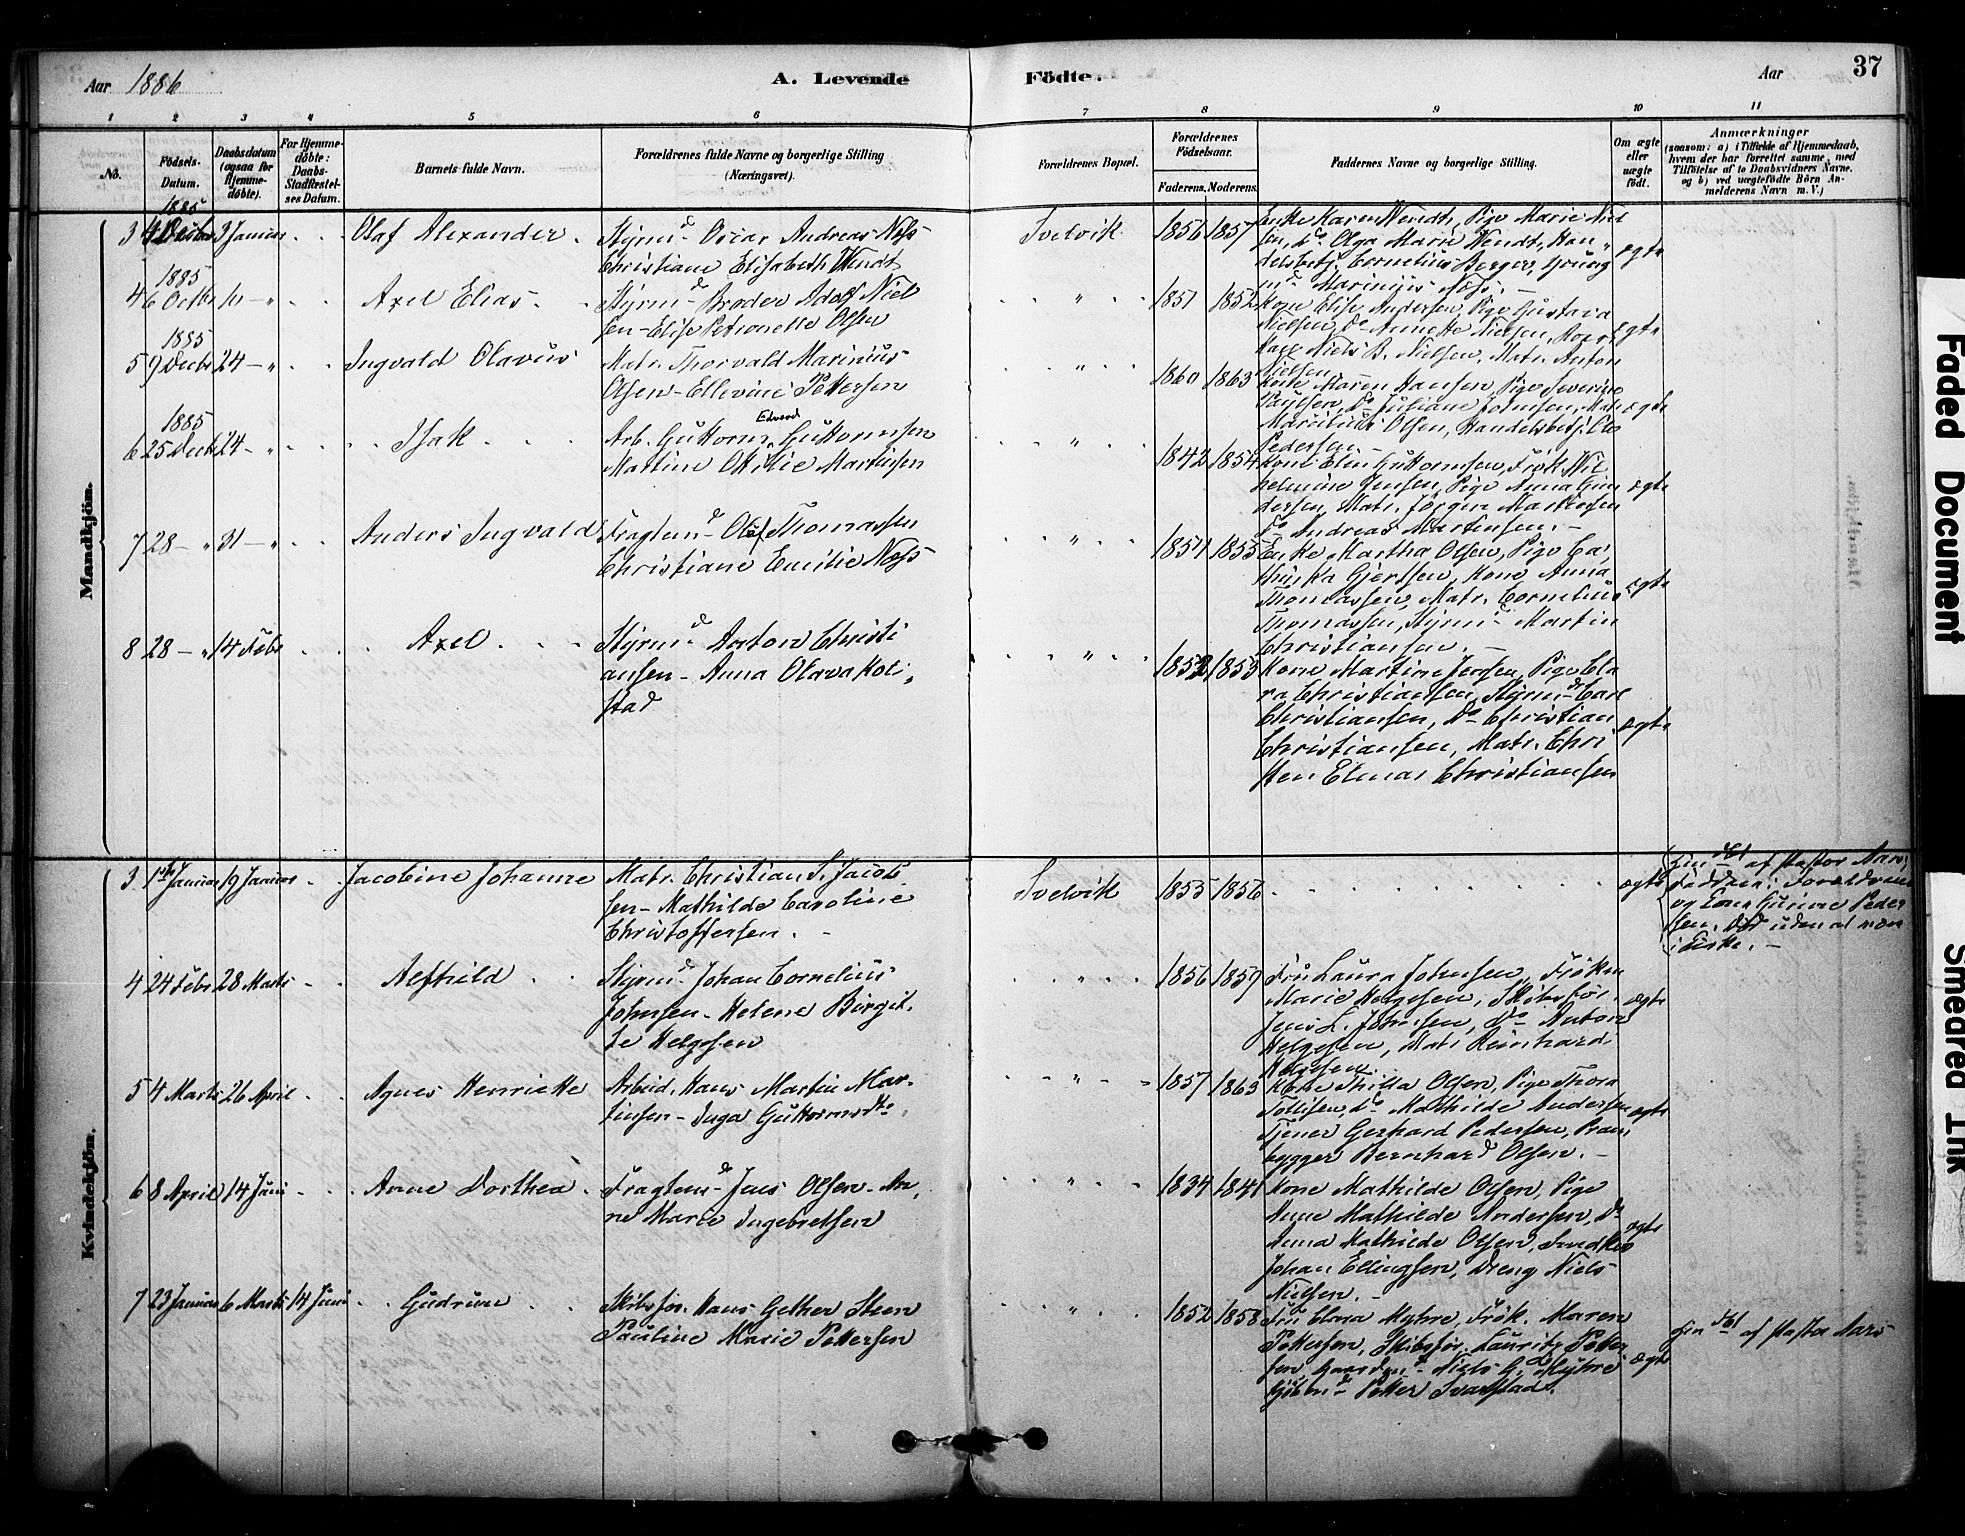 Aar 1886
A. Levende
Födte.
Aar
37
1 2 3 4 5 6 7 8 9 10 11
No.
Födsels-
Datum.
Daabsdatum
(ogsaa for
Hjemme-
döbte).
For Hjemme-
döbte:
Daabs-
Stadfæstel-
ses Datum.
Barnets fulde Navn.
Forældrenes fulde Navne og borgerlige Stilling
(Næringsvei).
Forældrenes Bopæl.
Forældrenes
Födselsaar.
Faderens. Moderens.
Faddernes Navne og borgerlige Stilling.
Om ægte
eller
uægte
födt.
Anmærkninger
(saasom: a) i Tilfælde af Hjemmedaab,
hvem der har forrettet samme, med
Tilföielse af to Daabsvidners Navne,
og b) ved uægtefödte Börn An-
melderens Navn m. V.)
Mandkjön.
1885
3 4 Decbr 3 Januar Olaf Alexander
Styrmd Oscar Andreas Næss
Christiane Elisabeth Wendt
Svelvik 1856 1857
Enke Karen Wendt, Pige Marie Niel
sen, do Olga Marie Wendt, Han
delsbetj. Cornelius Berger, Young
md Marinius Næss. ægte
1885
4 6 Octbr Axel Elias
Styrmd Broder Adolf Niel
sen - Elise Petronelle Olsen
1851 1852
Kone Elise Andersen, Pige Gustava
Nielsen, do Annette Nielsen,
Niels B. Nielsen, Matr. Anton
Nielsen ægte
1885
5 9 Decbr 24 Ingvald Olavus
Matr. Thorvald Marinius
Olsen - Ellevine Pettersen
1860 1863
Kone Maren Hansen, Pige Severine
Paulsen, do Juliane Johnsen, Matr
Marcilius Olsen, Handelsbetj.
Pedersen ægte
1885
6 25 Decb 24 Isak
Edvard
Arb. Guttorm Guttormsen
Martine Otilie Martinsen
1842 1854
Kone Elin Guttormsen, Frök. Wil
helmine Jensen, Pige Anna Gun
dersen, Matr. Jörgen Martinsen
do Andreas Martinsen. ægte
7 28 31 Anders Ingvald
Fragtemd Oluf Thomassen
Christiane Emilie Næss
1851 1855
Enke Martha Olsen, Pige Ca
Gjertsen, Kone Anna
Thomassen, Matr. Cornelius
Thomassen, Styrmd Martin
Christiansen. ægte
8 28 14 Febr Axel
Styrmd Anton Christi
ansen - Anna Olava Koli
stad
1852 1853
Kone Martine Jensen, Pige Cla
ra Christiansen, Styrmd Carl
Christiansen, Do Christian
Christiansen, Matr. Chri
sten Elmar Christiansen ægte
Kvindekjön.
3 1ste Januar 19 Januar Jacobine Johanne
Matr. Christian S. Jacob
sen - Mathilde Caroline
Christoffersen.
Svelvik 1855 1856 ægte
af Pastor Aars
Faddere: Forældrene
og Gunine Peder
sen. Död uden at være
i Kirke.
4 24 Febr 28 Marts Alfhild
Styrmd Johan Cornelius
Johnsen - Helene Birgit
te Helgesen
1856 1859
Fru Laura Johnsen, Fröken
Marie Helgesen, Skibsför.
Jens L. Johnsen, do Anton
Helgesen, Matr Reinhard
Helgesen. ægte
5 4 Marts 26 April Agnes Henriette
Arbeid. Hans Martin Mar
tinsen - Inga Guttormsdtr
1857 1863
Kone Thilla Olsen, Pige Thora
Tollisen, do Mathilde Andersen
Tjener Gerhard Pedersen, Pram
bygger Bernhard Olsen. ægte
6 8 April 14 Juni Anne Dorthea
Fragtemd Jens Olsen - An
ne Marie Ingebretsen
1834 1841
Kone Mathilde Olsen, Pige
Anne Mathilde Andersen, do
Anna Mathilde Olsen, Snedker
Johan Ellingsen, Dreng Niels
Nielsen. ægte
7 23 Januar 6 Marts 14 Juni Gudrun
Skibsför. Hans Gether Steen
Pauline Marie Pettersen
1852 1858
Fru Clara Myhre, Frök. Maren
Pettersen, Skibsför. Lauritz Petter
sen, Gaardmd Niels G. Myhre
Petter Svarstad. ægte
af Pastor Aars
Faded Document
Smeared Ink